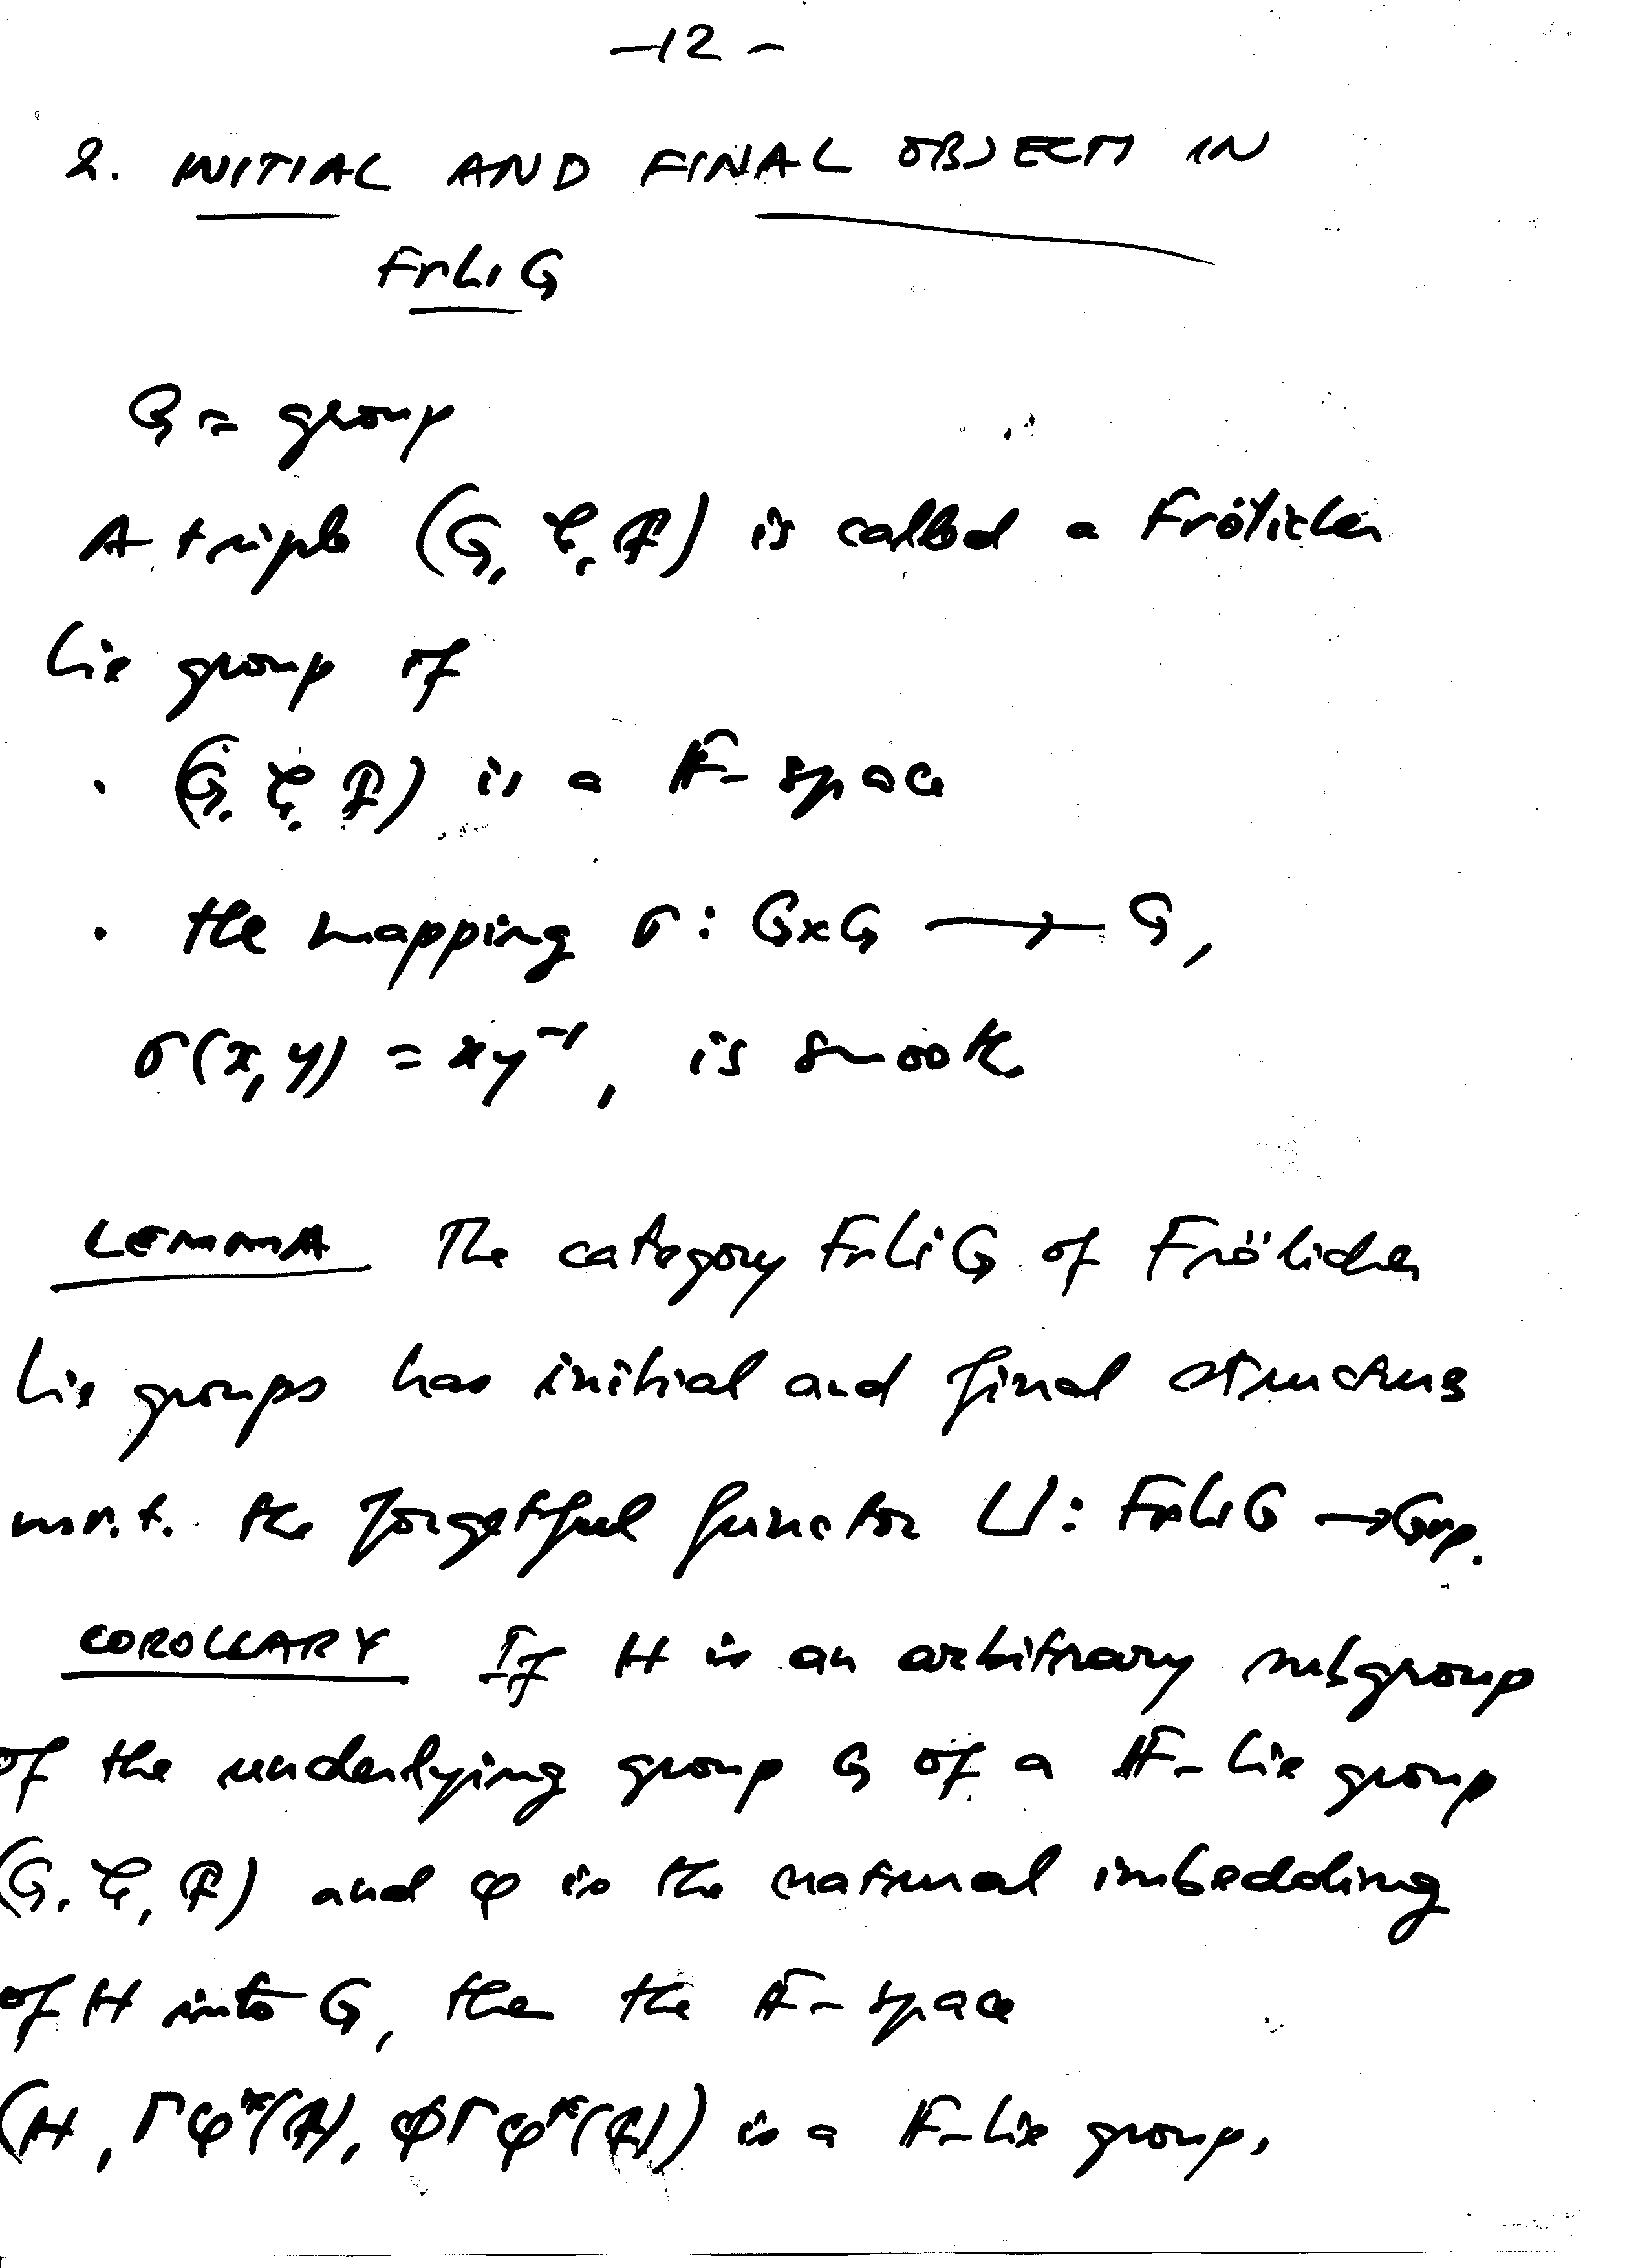 -12-
2. INITIAL AND FINAL OBJECTS IN
FrLiG
G = group
A triple (G, 𝒞, ℱ) is called a Frölicher
Lie group if
· (G, 𝒞, ℱ) is a F-space
· the mapping σ: G×G ⟶ G,
σ(x,y) = xy⁻¹, is smooth
LEMMA The category FrLiG of Frölicher
Lie groups has initial and final structures
w.r.t. the forgetful functor U: FrLiG → Grp.
COROLLARY If H is an arbitrary subgroup
of the underlying group G of a F-Lie group
(G, 𝒞, ℱ) and φ is the natural imbedding
of H into G, then the F-space
(H, Γφ*(ℱ), ΦΓφ*(ℱ)) is a F-Lie group.